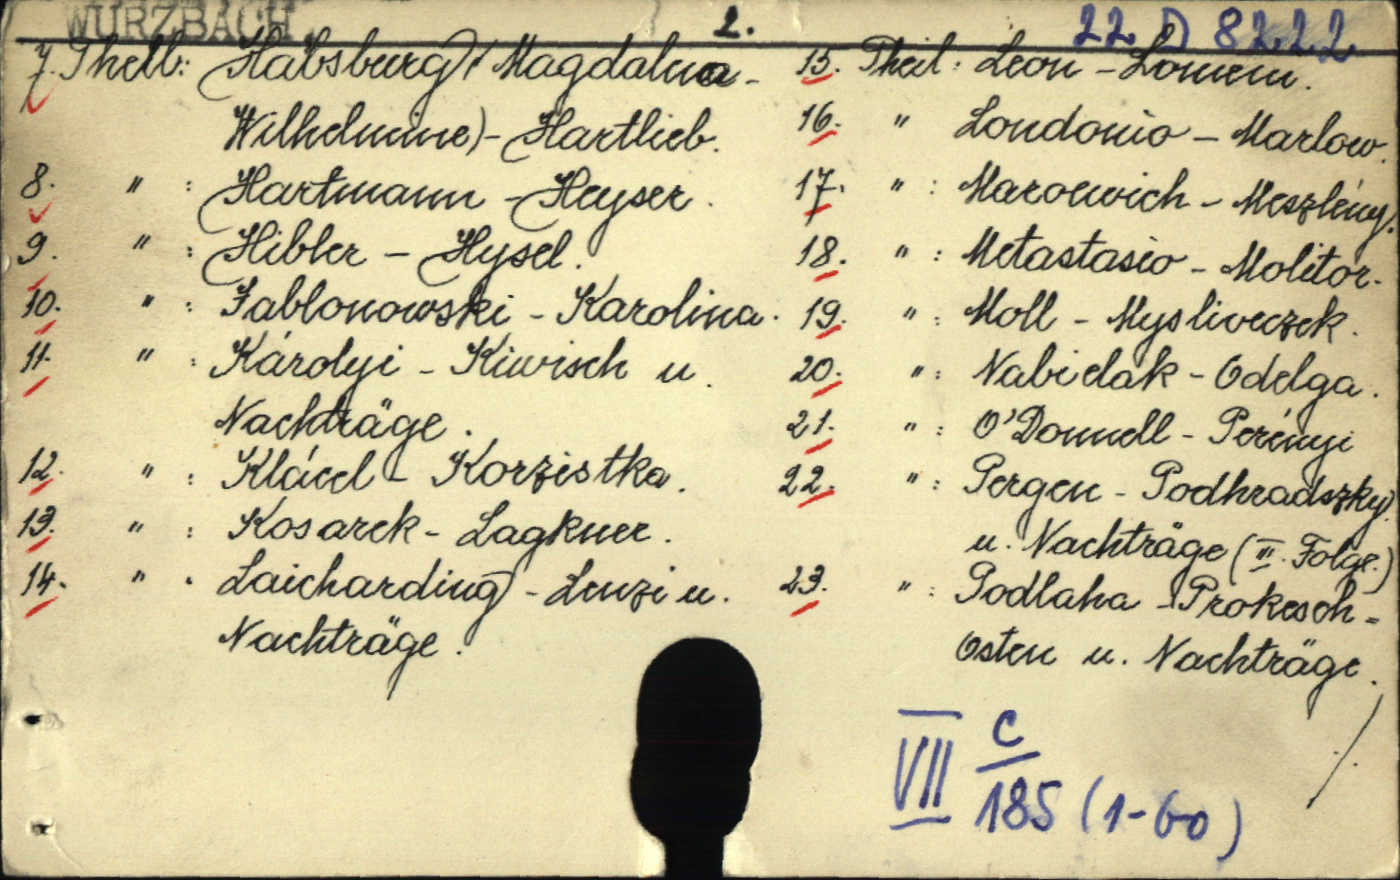 WURZBACH
2.
22 D 82.2.2
7. Theil: Habsburg (Magdalena
Wilhelmine) - Hartlieb.
8. " : Hartmann - Heyser.
9. " : Hibler - Hysel.
10. " : Jablonowski - Karolina.
11. " : Károlyi - Kiwisch u.
Nachträge.
12. " : Klácel - Korzistka.
13. " : Kosarek - Lagkner.
14. " : Laicharding - Lenzi u.
Nachträge.
15. Theil: Leon - Lomeni.
16. " Londonio - Marlow.
17. " : Maroevich - Meszlény.
18. " : Metastasio - Molitor.
19. " : Moll - Mysliveczek.
20. " : Nabielak - Odelga.
21. " : O'Donnell - Perényi
22. " : Pergen - Podhradszky
u. Nachträge (III. Folge.)
23. " : Podlaha - Prokesch-
Osten u. Nachträge.
VII C/185 (1-60)